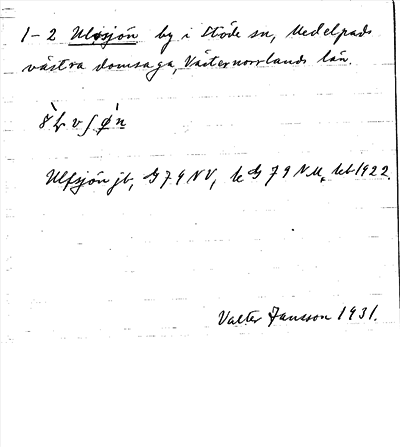 1-2 Ulvsjön by i Stöde sn, Medelpads
västra domsaga, Västernorrlands län.
Ulfsjön jb, G 79 NV, be G 79 NV, bet 1922.
Valter Jansson 1931.